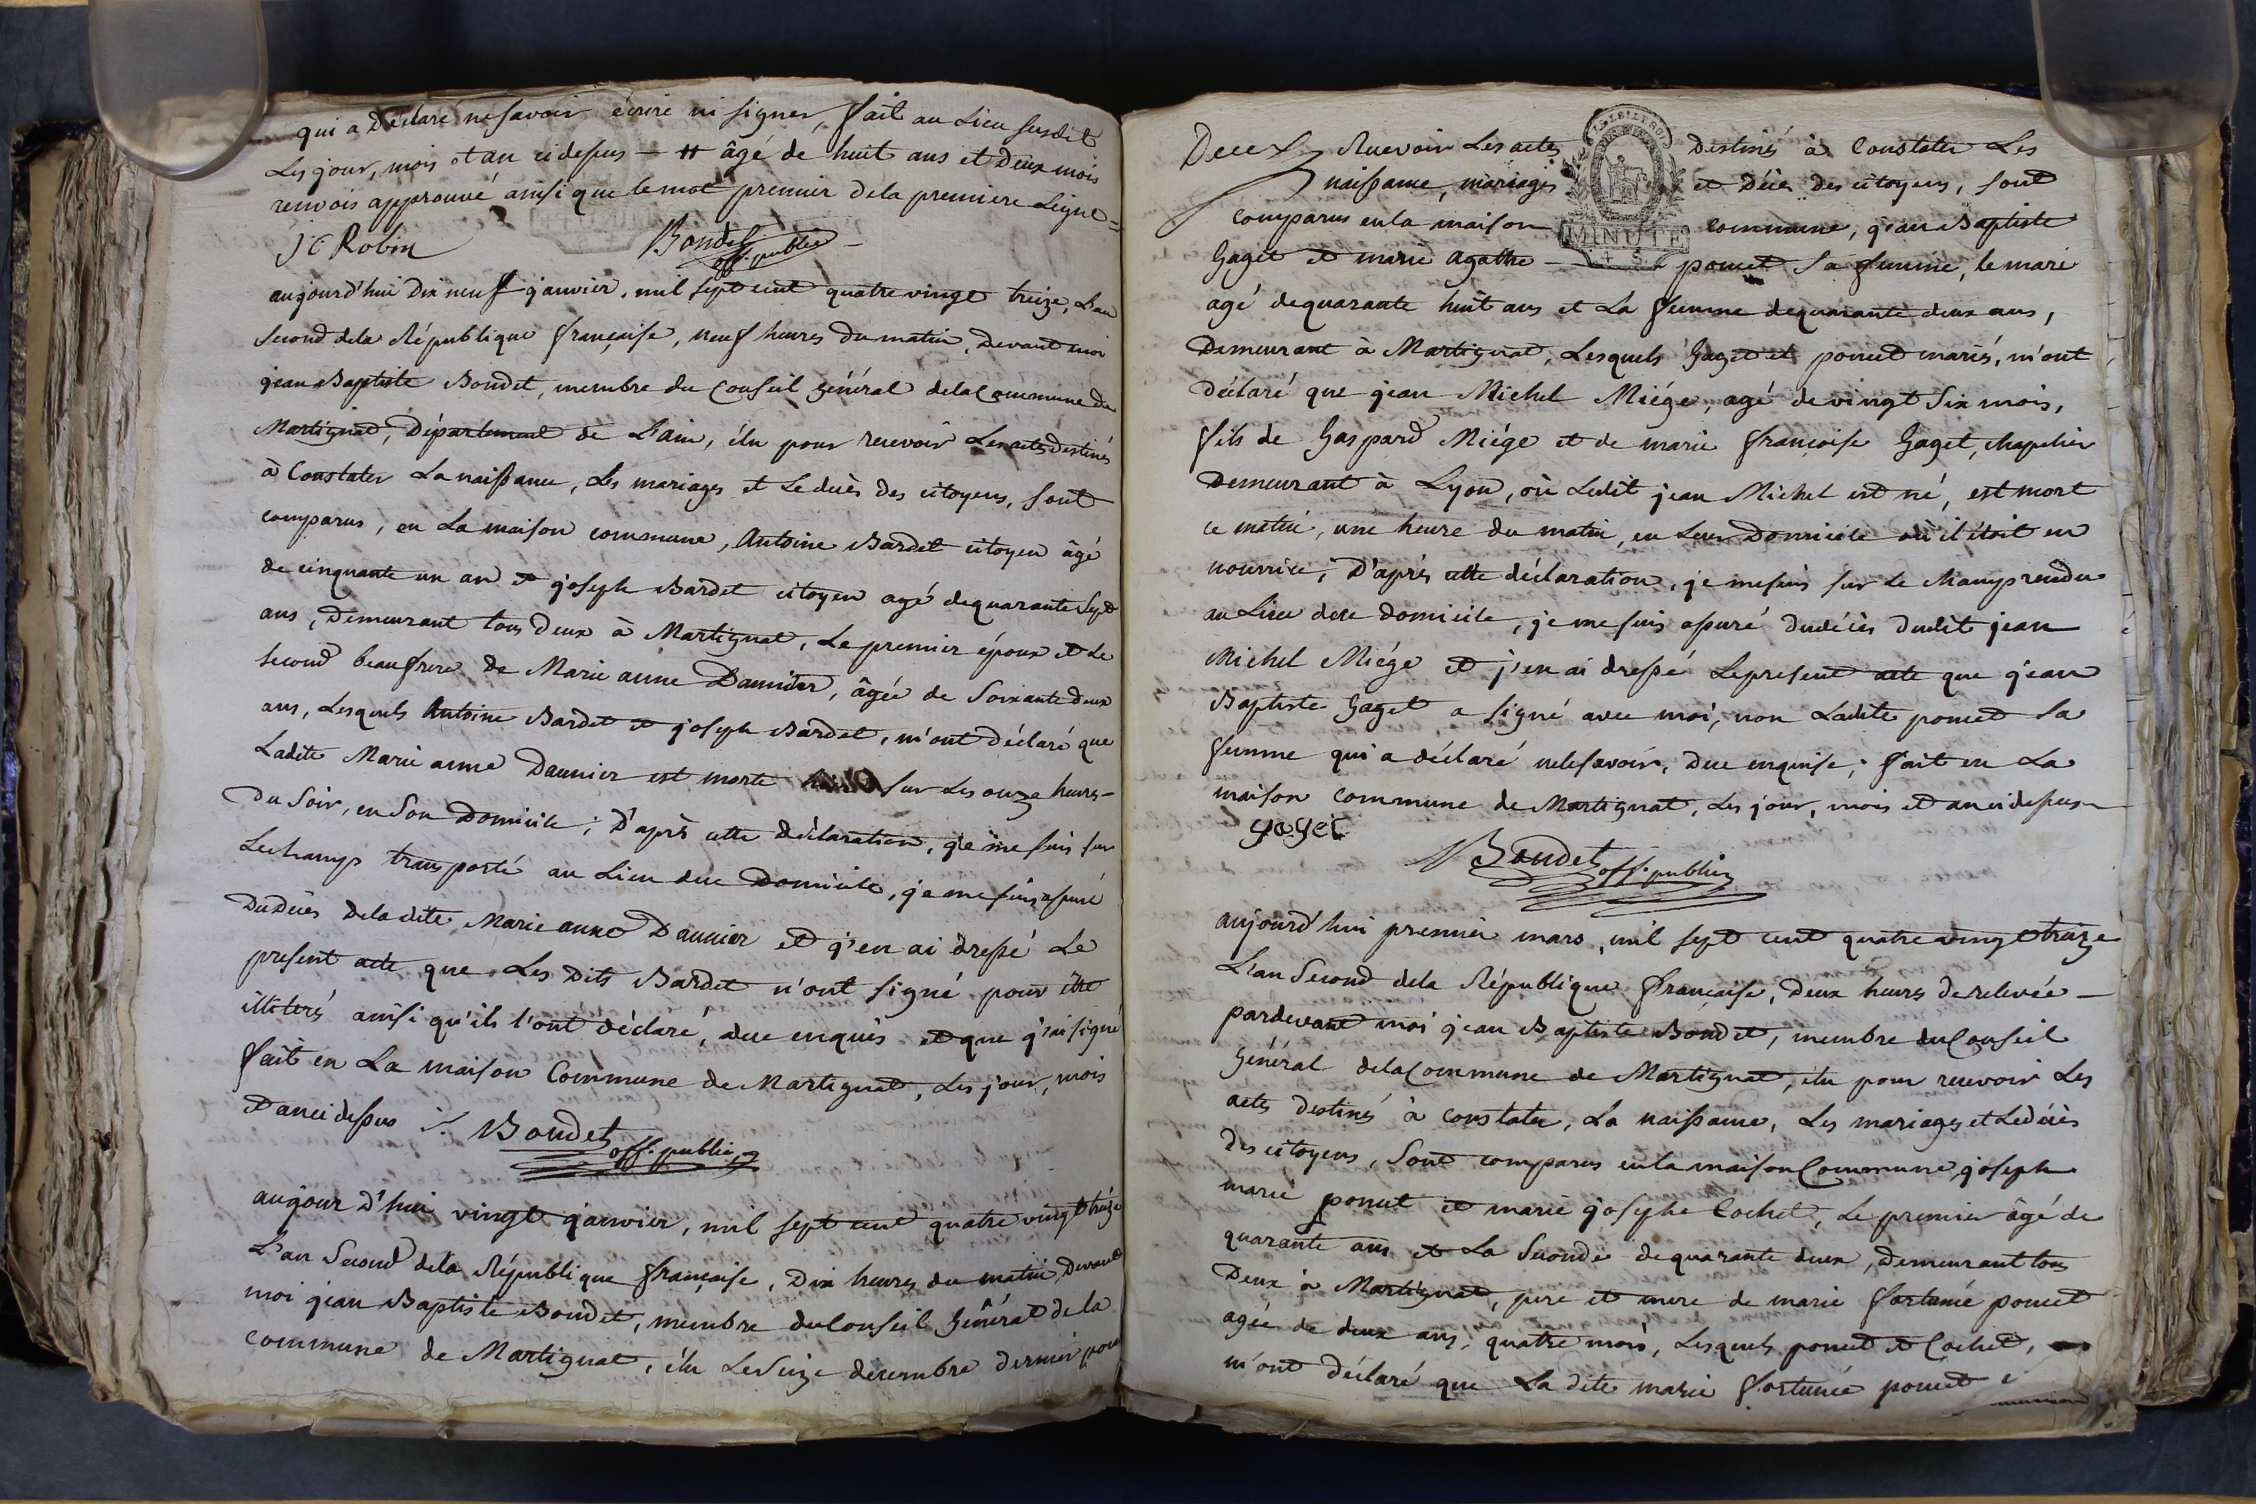 qui a Déclaré ne savoir écrire ni signer, fait au Lieu susdit
Les jour, mois et an ci depus — # âgé de huit ans et Deux mois
renvois approuvé ainsi que le mot premier de la premiere Ligne =
J C Robin Bondet off. public
aujourd'hui Dix neuf janvier, mil sept cent quatre vingt treize, L'an
second de la République française, neuf heures du matin, Devant moi
jean Baptiste Bondet, membre du Conseil Général de la Commune de
Martignat, Département de L'ain, élu pour recevoir Les actes destinés
à Constater La naissance, Les mariages et Le decès des citoyens, sont
comparus, en La maison commune, Antoine Bardet citoyen âgé
de cinquante un an et joseph Bardet citoyen agé de quarante sept
ans, Demeurant tous Deux à Martignat, Le premier époux et Le
second beaufrere de Marie anne Daunier, âgée de Soixante Deux
ans, Lesquels Antoine Bardet et joseph Bardet, m'ont Déclaré que
Ladite Marie anne Daunier est morte sur Les onze heures
Du Soir, en Son Domicile; D'après cette déclaration, je me suis sur
Le champ transporté au Lieu de ce Domicile, je me suis assuré
Du Décès de la dite Marie anne Daunier et j'en ai dressé Le
present acte que Les Dits Bardet n'ont signé pour être
illiterés ainsi qu'ils l'ont déclaré, de ce enquis et que j'ai signé
fait en La maison Commune de Martignat, Les jour, mois
et an ci dessus ./. Bondet off. public
aujour D'hui vingt janvier, mil sept cent quatre vingt treize
L'an Second de la République française, Dix heures du matin, Devant
moi jean Baptiste Bondet, membre du Conseil Général de la
commune de Martignat, élu Le Seize decembre dernier pour
Decex Recevoir Les actes Destinés à Constater Les
naissance, mariages et Décès des citoyens, sont
comparus en la maison commune, jean Baptiste
MINUTE
Gaget et marie agathe — poncet sa femme, le mari
agé de quarante huit ans et La femme de quarante deux ans,
Demeurant à Martignat, Lesquels Gaget et poncet mariés, m'ont
Déclaré que jean Michel Miége, agé de vingt Six mois,
fils de Gaspard Miége et de marie françoise Gaget, chapelier
Demeurant à Lyon, où Ledit jean Michel est né, est mort
ce matin, une heure du matin, en Leur Domicile où il étoit en
nourrice, D'après cette déclaration, je me suis sur Le champ rendu
au Lieu de ce domicile, je me suis assuré du décès dudit jean
Michel Miége et j'en ai dressé Le present acte que jean
Baptiste Gaget a signé avec moi, non Ladite poncet Sa
femme qui a déclaré ne le savoir, De ce enquise; fait en La
maison commune de Martignat, Les jour, mois et an ci dessus
gaget
Bondet off. public
aujourd'hui premier mars, mil sept cent quatre vingt treize
L'an Second de la République française, Deux heures de relevée —
pardevant moi jean Baptiste Bondet, membre du Conseil
Général de la Commune de Martignat, élu pour recevoir Les
actes destinés à constater, La naissance, Les mariages et Le décès
des citoyens, Sont comparus en la maison Commune, joseph
marie poncet et marie josephe Cochet, Le premier âgé de
quarante ans et La Seconde de quarante deux, demeurant tous
Deux à Martignat, pere et mere de marie fortunée poncet
agée de deux ans, quatre mois, Lesquels poncet et Cochet,
m'ont déclaré que La dite marie fortunée poncet